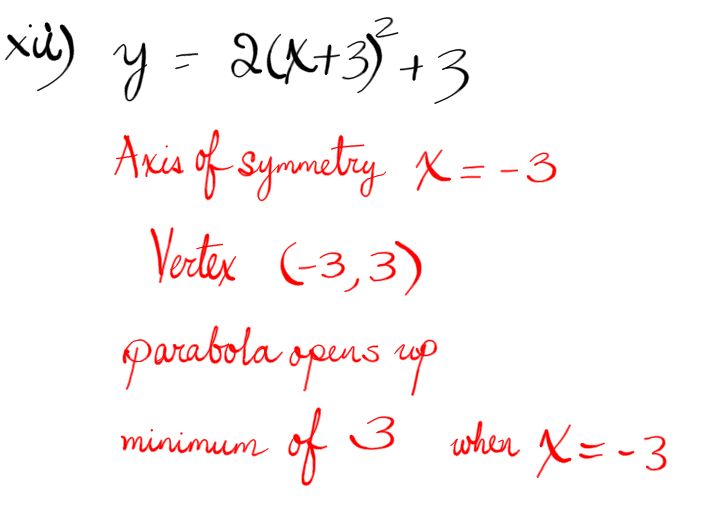 xii) y = 2(x+3)² + 3
Axis of symmetry x = -3
Vertex (-3, 3)
parabola opens up
minimum of 3 when x = -3